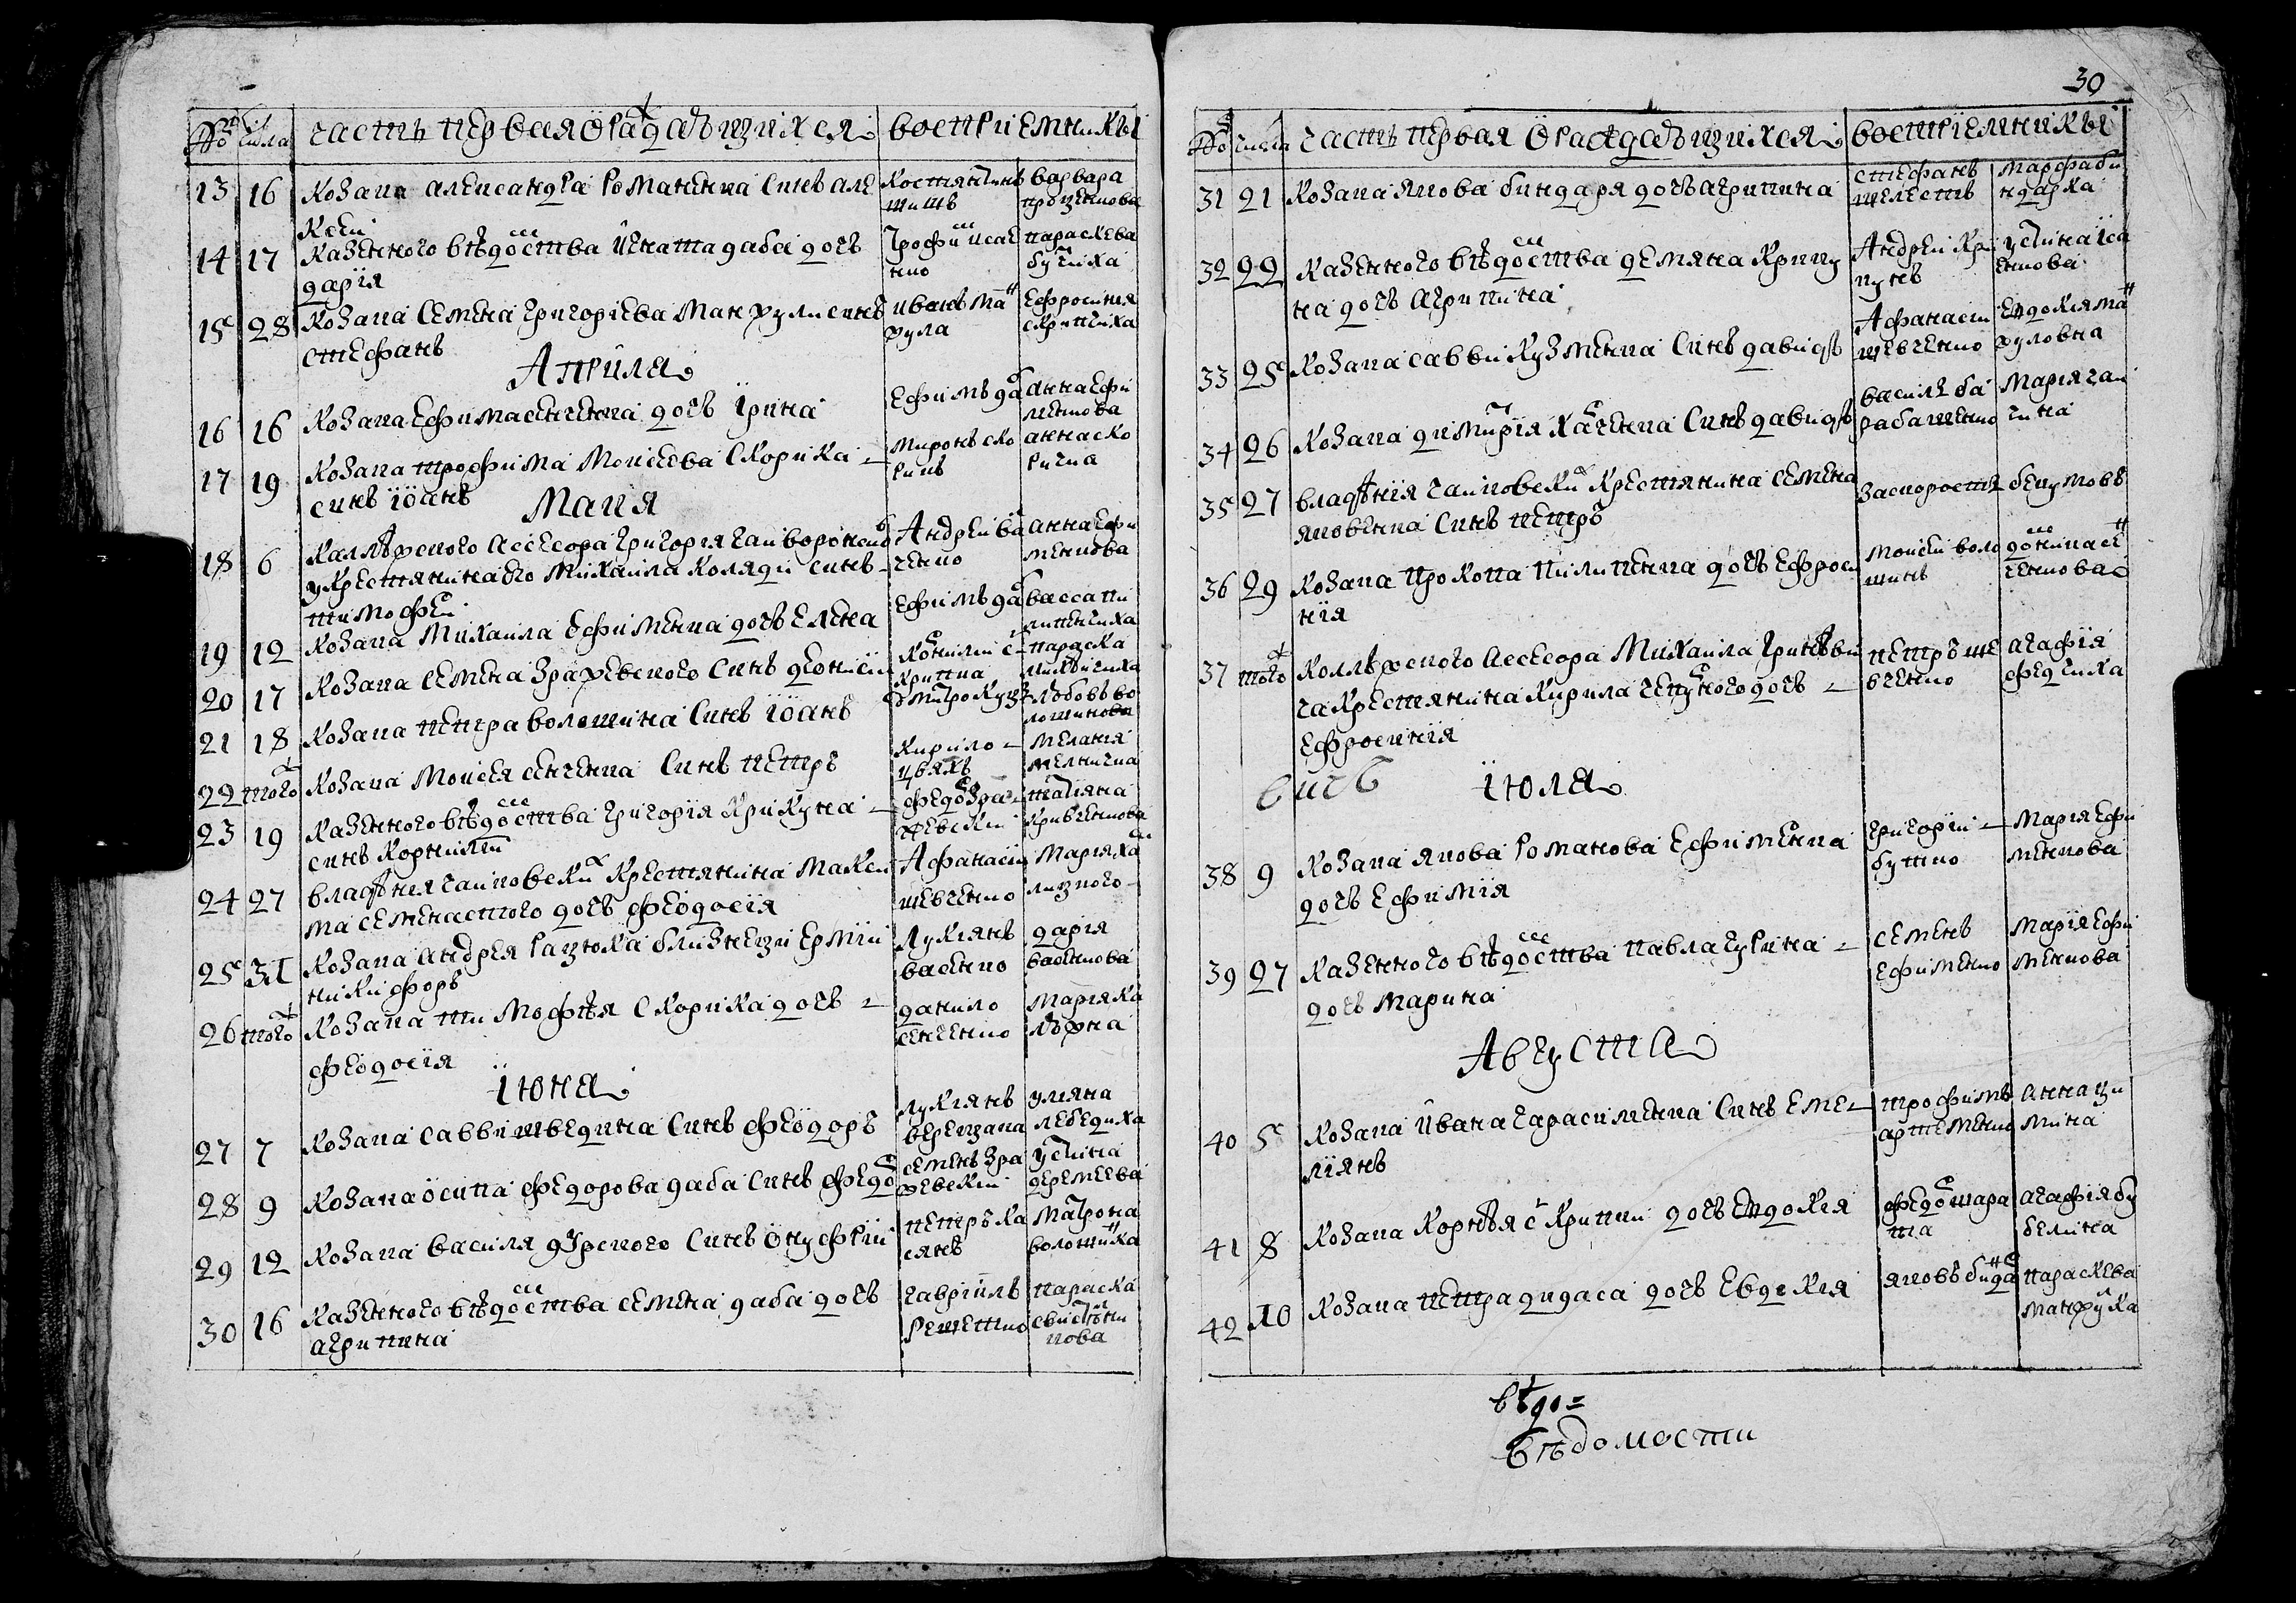 30
№ числа часть первая ѡ раждающихся воспріемники
13 16 козака александра романенка синъ але
ксѣй
Костянтинъ
варвара
проценкова
14 17 казенного вѣдомства игната даба дочь
дарія
трофим исае
нко
параскева
бутчиха
15 28 козака семена григоріева манжули синъ
стефанъ
иванъ ман
жула
ефросинія
скрипчиха
Априля
16 16 козака ефима сенченка дочь ірина
ефимъ даб
анна ефи
менкова
17 19 козака трофима моисеева скорика
синъ іоаннъ
миронъ ско
рикъ
анна ско
ричка
Маия
18 6 коллѣжского ассесора григорія чайковского
у крестянина его михаила коляди синъ
тимофей
Андрей ва
ченко
анна ефи
менкова
19 12 козака михаила ефименка дочь елена
ефимъ даб
васса пи
липенчиха
20 17 козака семена зражевского синъ деонисій
корнилій с
крипка
параска
21 18 козака петра волошина синъ іоаннъ
дмитро куц
любовъ во
лошинова
22 того козака моисея сенченка синъ петръ
кирило
цвяхъ
меланія
мелничка
23 19 казенного вѣдомства григорія крикуна
синъ корнилій
федор зра
жевскій
татіяна
кривченкова
24 27 владѣнія чайковских крестянина макси
ма семенастого дочь феодосія
Афанасій
шевченко
марія ха
лизного
25 31 козака андрея рацюка близнеци ермій
никифоръ
лукіянъ
васенко
дарія
васенкова
26 того козака тимофѣя скорика дочь
феодосія
данило
сенченко
марія ка
люжна
іюня
27 7 козака савви шведина синъ феодоръ
лукіянъ
верещака
уляна
лебедиха
28 9 козака осипа федорова даба синъ федор
семенъ зра
жевскій
устина
деремеева
29 12 козака василя дзюрского синъ онуфрій
петръ ка
сянъ
матрона
волошинка
30 16 казенного вѣдомства семена даба дочь
агрипина
гавріилъ
решетко
параска
свистѣлни
кова
№ числа часть первая ѡ раждающихся воспріемники
31 21 козака якова биндаря дочь агрипина
стефанъ
шелестъ
марфа би
ндарка
32 22 казенного вѣдомства демяна крипу
на дочь агрипина
Андрей кри
пунъ
устина іса
енкова
33 25 козака савви кузменка синъ давидъ
Афанасій
шевченко
евдокія ман
жуловна
34 26 козака димитрія харченка синъ давидъ
василь ба
рабашенко
марія чай
чина
35 27 владѣнія чайковских крестянина семена
яковенка синъ петръ
36 29 козака прокопа пилипенка дочь ефроси
нія
моисей воло
шинъ
домникія се
нченкова
37 того коллѣжского ассесора михаила григорови
ча крестянина кирила чепурного дочь
ефросинія
петръ ше
вченко
агафія
федчиха
іюля
38 9 козака якова романова ефименка
дочь ефимія
григорій
бутко
марія ефи
менкова
39 27 казенного вѣдомства павла гурина
дочь марина
семенъ
ефименко
марія ефи
менкова
Августа
40 5 козака ивана гарасименка синъ еме
ліянъ
трофимъ
артеменко
анна ци
мина
41 8 козака корнѣя скрипки дочь евдокія
федор шара
та
агафія бу
белина
42 10 козака петра дидаса дочь евдокія
яковъ бинда
параскева
манжулка
вѣдо=
вѣдомости